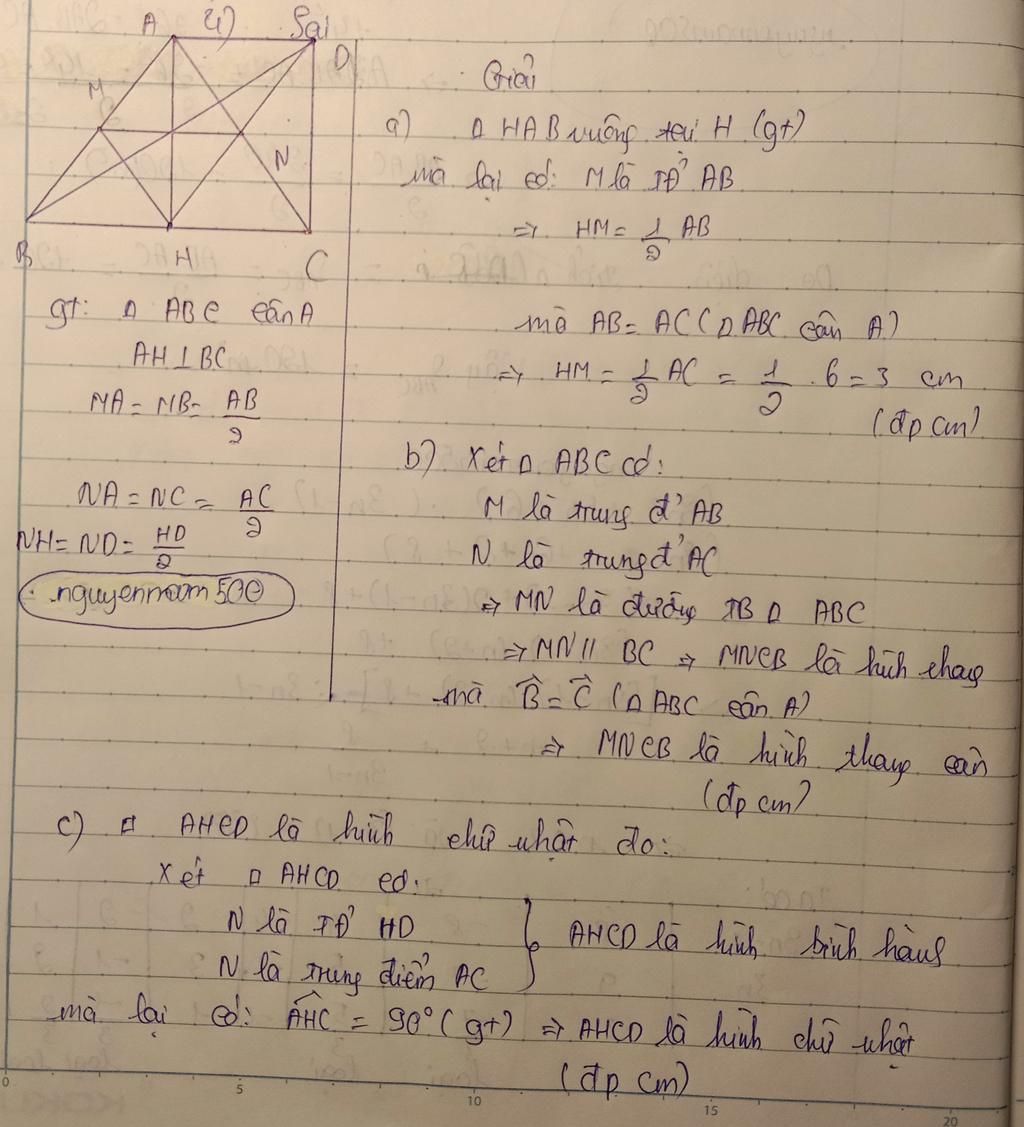 A 4) Sai D
M
N
B H C
gt: Δ ABC cân A
AH ⊥ BC
MA = MB = AB/2
NA = NC = AC/2
NH = ND = HD/2
nguyennam500
Giải
a) Δ HAB vuông tại H (gt)
mà lại có: M là TĐ' AB
=> HM = 1/2 AB
mà AB = AC (Δ ABC cân A)
=> HM = 1/2 AC = 1/2 . 6 = 3 cm
(đp cm)
b) Xét Δ ABC có:
M là trung đ' AB
N là trung đ' AC
=> MN là đường TB Δ ABC
=> MN // BC => MNCB là hình thang
mà B̂ = Ĉ (Δ ABC cân A)
=> MNCB là hình thang cân
(đp cm)
c) □ AHCD là hình chữ nhật do:
Xét □ AHCD có:
N là TĐ' HD
N là trung điểm AC } AHCD là hình bình hành
mà lại có: AHC = 90° (gt) => AHCD là hình chữ nhật
(đp cm)
0 5 10 15 20